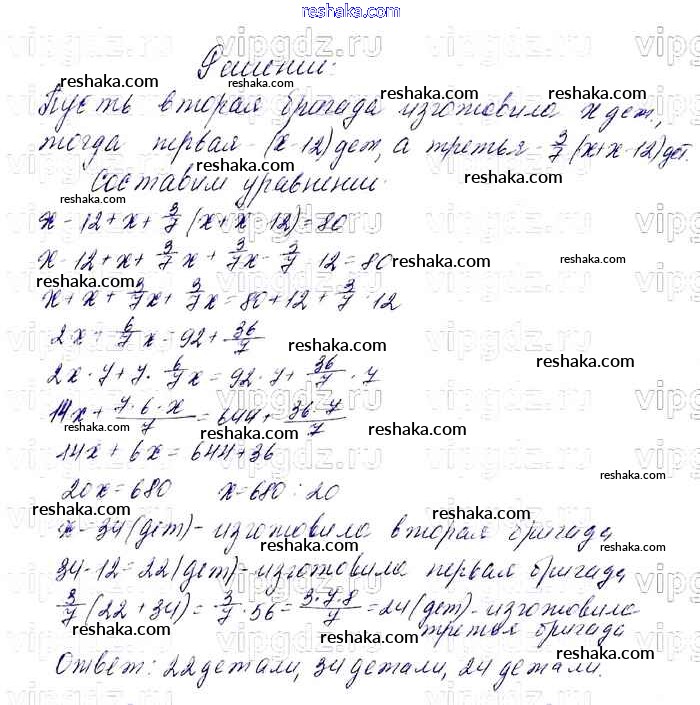 reshaka.com
Решение:
Пусть вторая бригада изготовила x дет.,
тогда первая - (x-12) дет, а третья - 3/7 (x+x-12) дет.
Составим уравнение:
x - 12 + x + 3/7 (x+x-12) = 80
x - 12 + x + 3/7 x + 3/7 x - 3/7 · 12 = 80
x + x + 3/7 x + 3/7 x = 80 + 12 + 3/7 · 12
2x + 6/7 x = 92 + 36/7
2x · 7 + 7 · 6/7 x = 92 · 7 + 36/7 · 7
14x + 7·6·x/7 = 644 + 36·7/7
14x + 6x = 644 + 36
20x = 680 x = 680 : 20
x = 34 (дет) - изготовила вторая бригада
34 - 12 = 22 (дет) - изготовила первая бригада
3/7 (22 + 34) = 3/7 · 56 = 3·7·8/7 = 24 (дет) - изготовила
третья бригада
Ответ: 22 детали, 34 детали, 24 детали.